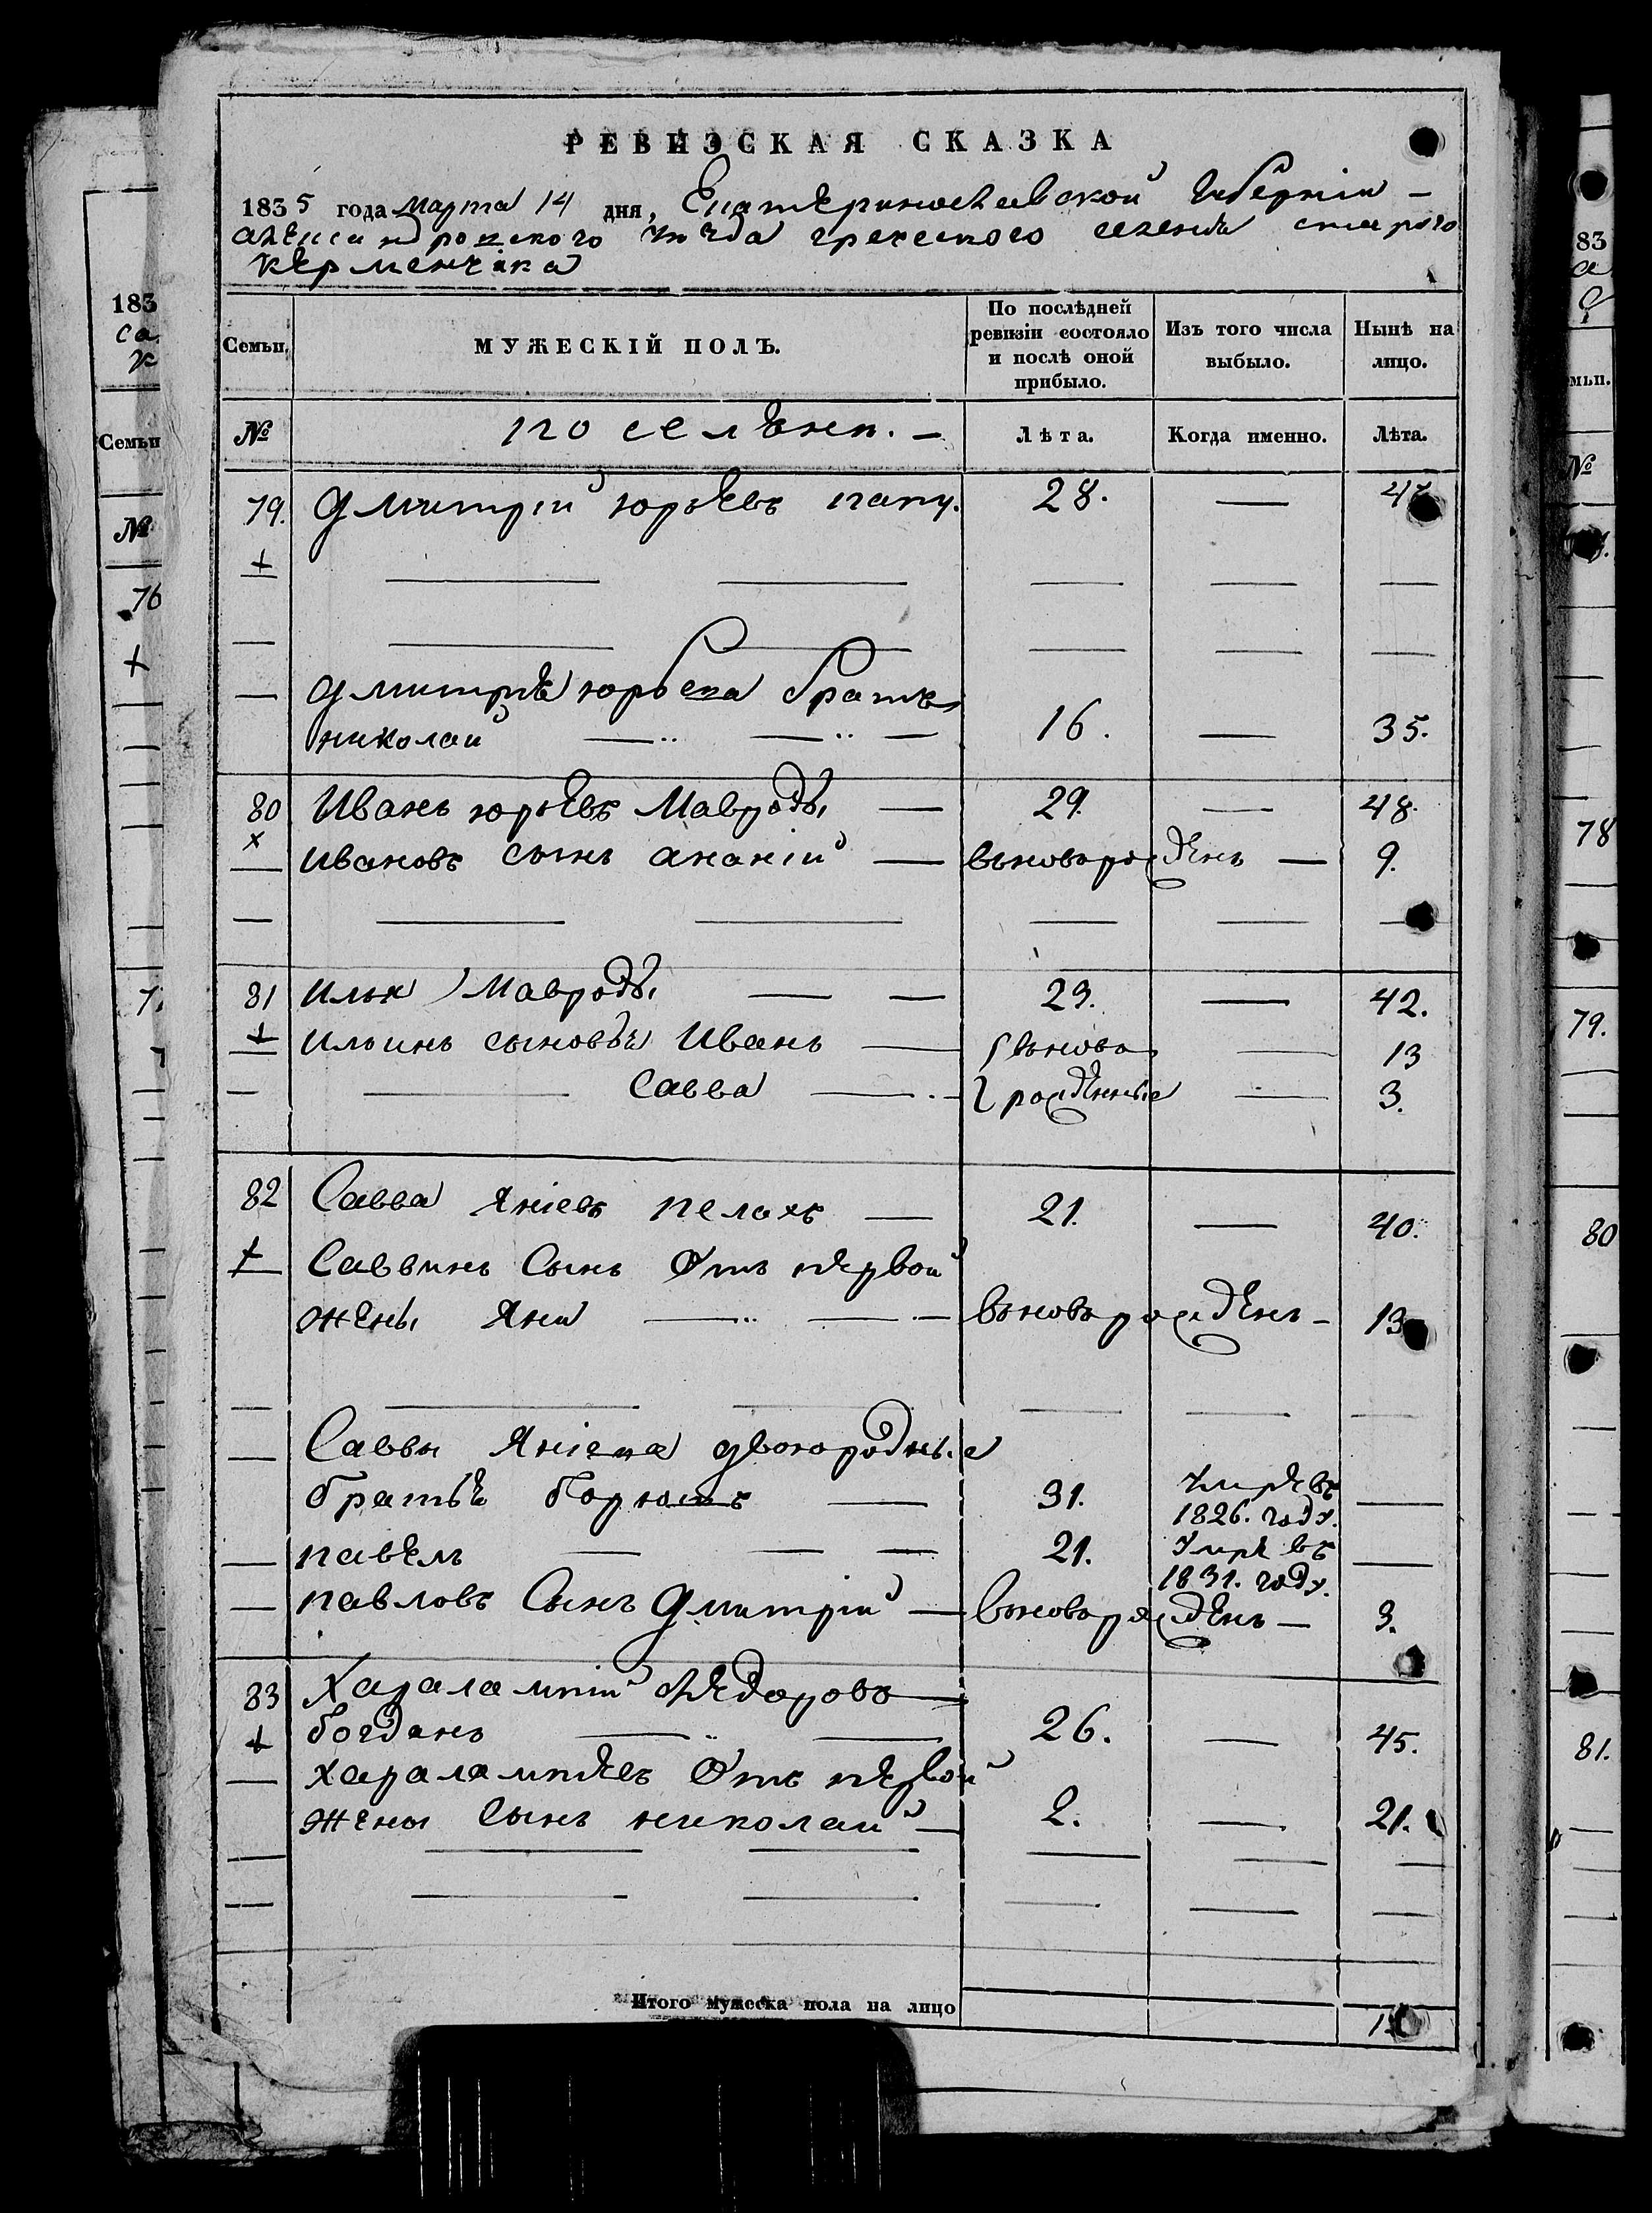 РЕВИЗСКАЯ СКАЗКА
1835 года марта 14 дня, Екатеринославской Губерніи —
александровского уезда греческого селенія старого
керменчика
Семьи.
МУЖЕСКІЙ ПОЛЪ.
По послѣдней ревизіи состояло и послѣ оной прибыло.
Изъ того числа выбыло.
Нынѣ на лицо.
№
поселянъ. —
Лѣта.
Когда именно.
Лѣта.
79. Дмитрій юрьевъ папу. 28. — 47
Дмитрія юрьева братъ
николай — — 16. — 35.
80 Иванъ юрьевъ Мавроды — 29. — 48.
ивановъ сынъ ананій — вьновь рожденъ — 9.
81 илья Мавроды — — 23. — 42.
ильинъ сыновья Иванъ — вьновь — 13
Савва — рожденные — 3.
82 Савва Яніевъ пелахъ — 21. — 40.
Саввинъ Сынъ Отъ первой
жены Яни — — вьновь рожденъ — 13
Саввы Яніева двоюродные
братья — 31. умре въ 1826. году. —
павелъ — — — 21. Умре въ 1831. году. —
павловъ Сынъ Дмитрій — вьновь рожденъ — 3.
83 Харалампій Федоровъ
богданъ — — 26. — 45.
харалампіевъ Отъ первой
жены Сынъ николай — 2. — 21.
Итого мужеска пола на лицо
183
са
к
Семьи
№
76
83
мьи.
№
78
79.
80
81.